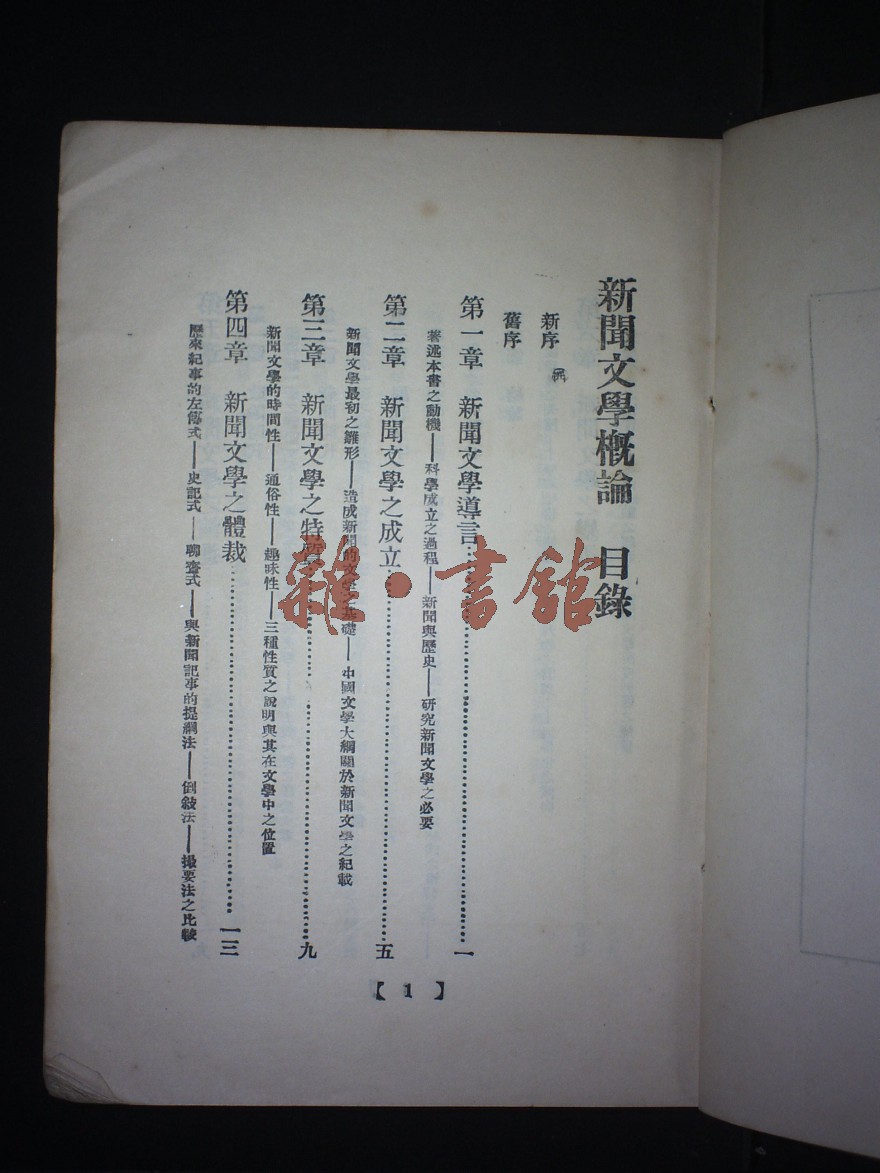 新聞文學概論　目錄
新序
舊序
第一章　新聞文學導言…………一
著述本書之動機——科學成立之過程——新聞與歷史——研究新聞文學之必要
第二章　新聞文學之成立…………五
新聞文學最初之雛形——造成新聞的文學之基礎——中國文學大綱關於新聞文學之紀載
第三章　新聞文學之特質…………九
新聞文學的時間性——通俗性——趣味性——三種性質之說明與其在文學中之位置
第四章　新聞文學之體裁…………一三
歷來紀事的左傳式——史記式——聊齋式——與新聞記事的提綱法——倒敍法——撮要法之比較
【1】
雜·書館